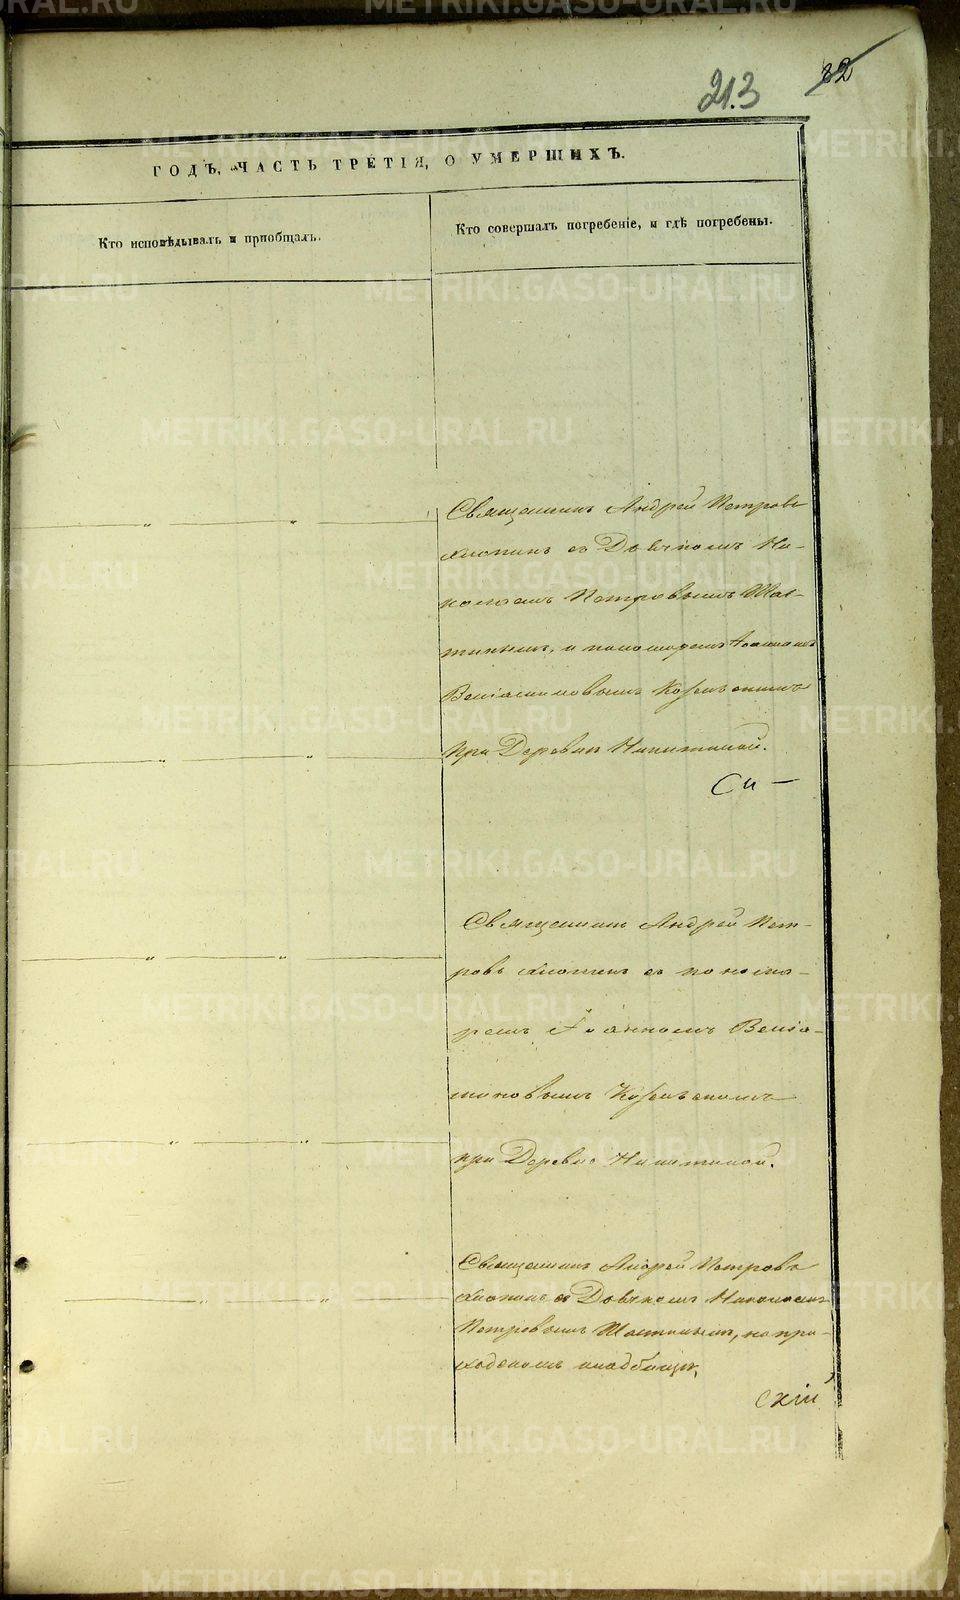 213
82
ГОДЪ, ЧАСТЬ ТРЕТІЯ, О УМЕРШИХЪ.
Кто исповѣдывалъ и пріобщалъ.
Кто совершалъ погребеніе, и гдѣ погребены.
Священникъ Андрей Петровъ
съ Дьячкомъ Ни-
колаемъ Петровымъ
и пономаремъ Іоанномъ
Веніаминовымъ
при Деревнѣ Никитиной.
Священникъ Андрей Пет-
ровъ съ понома-
ремъ Іоанномъ Веніа-
миновымъ
при Деревнѣ Никитиной.
Священникъ Андрей Петровъ
съ Дьячкомъ Николаемъ
Петровымъ на при-
ходскомъ кладбищѣ,
METRIKI.GASO-URAL.RU